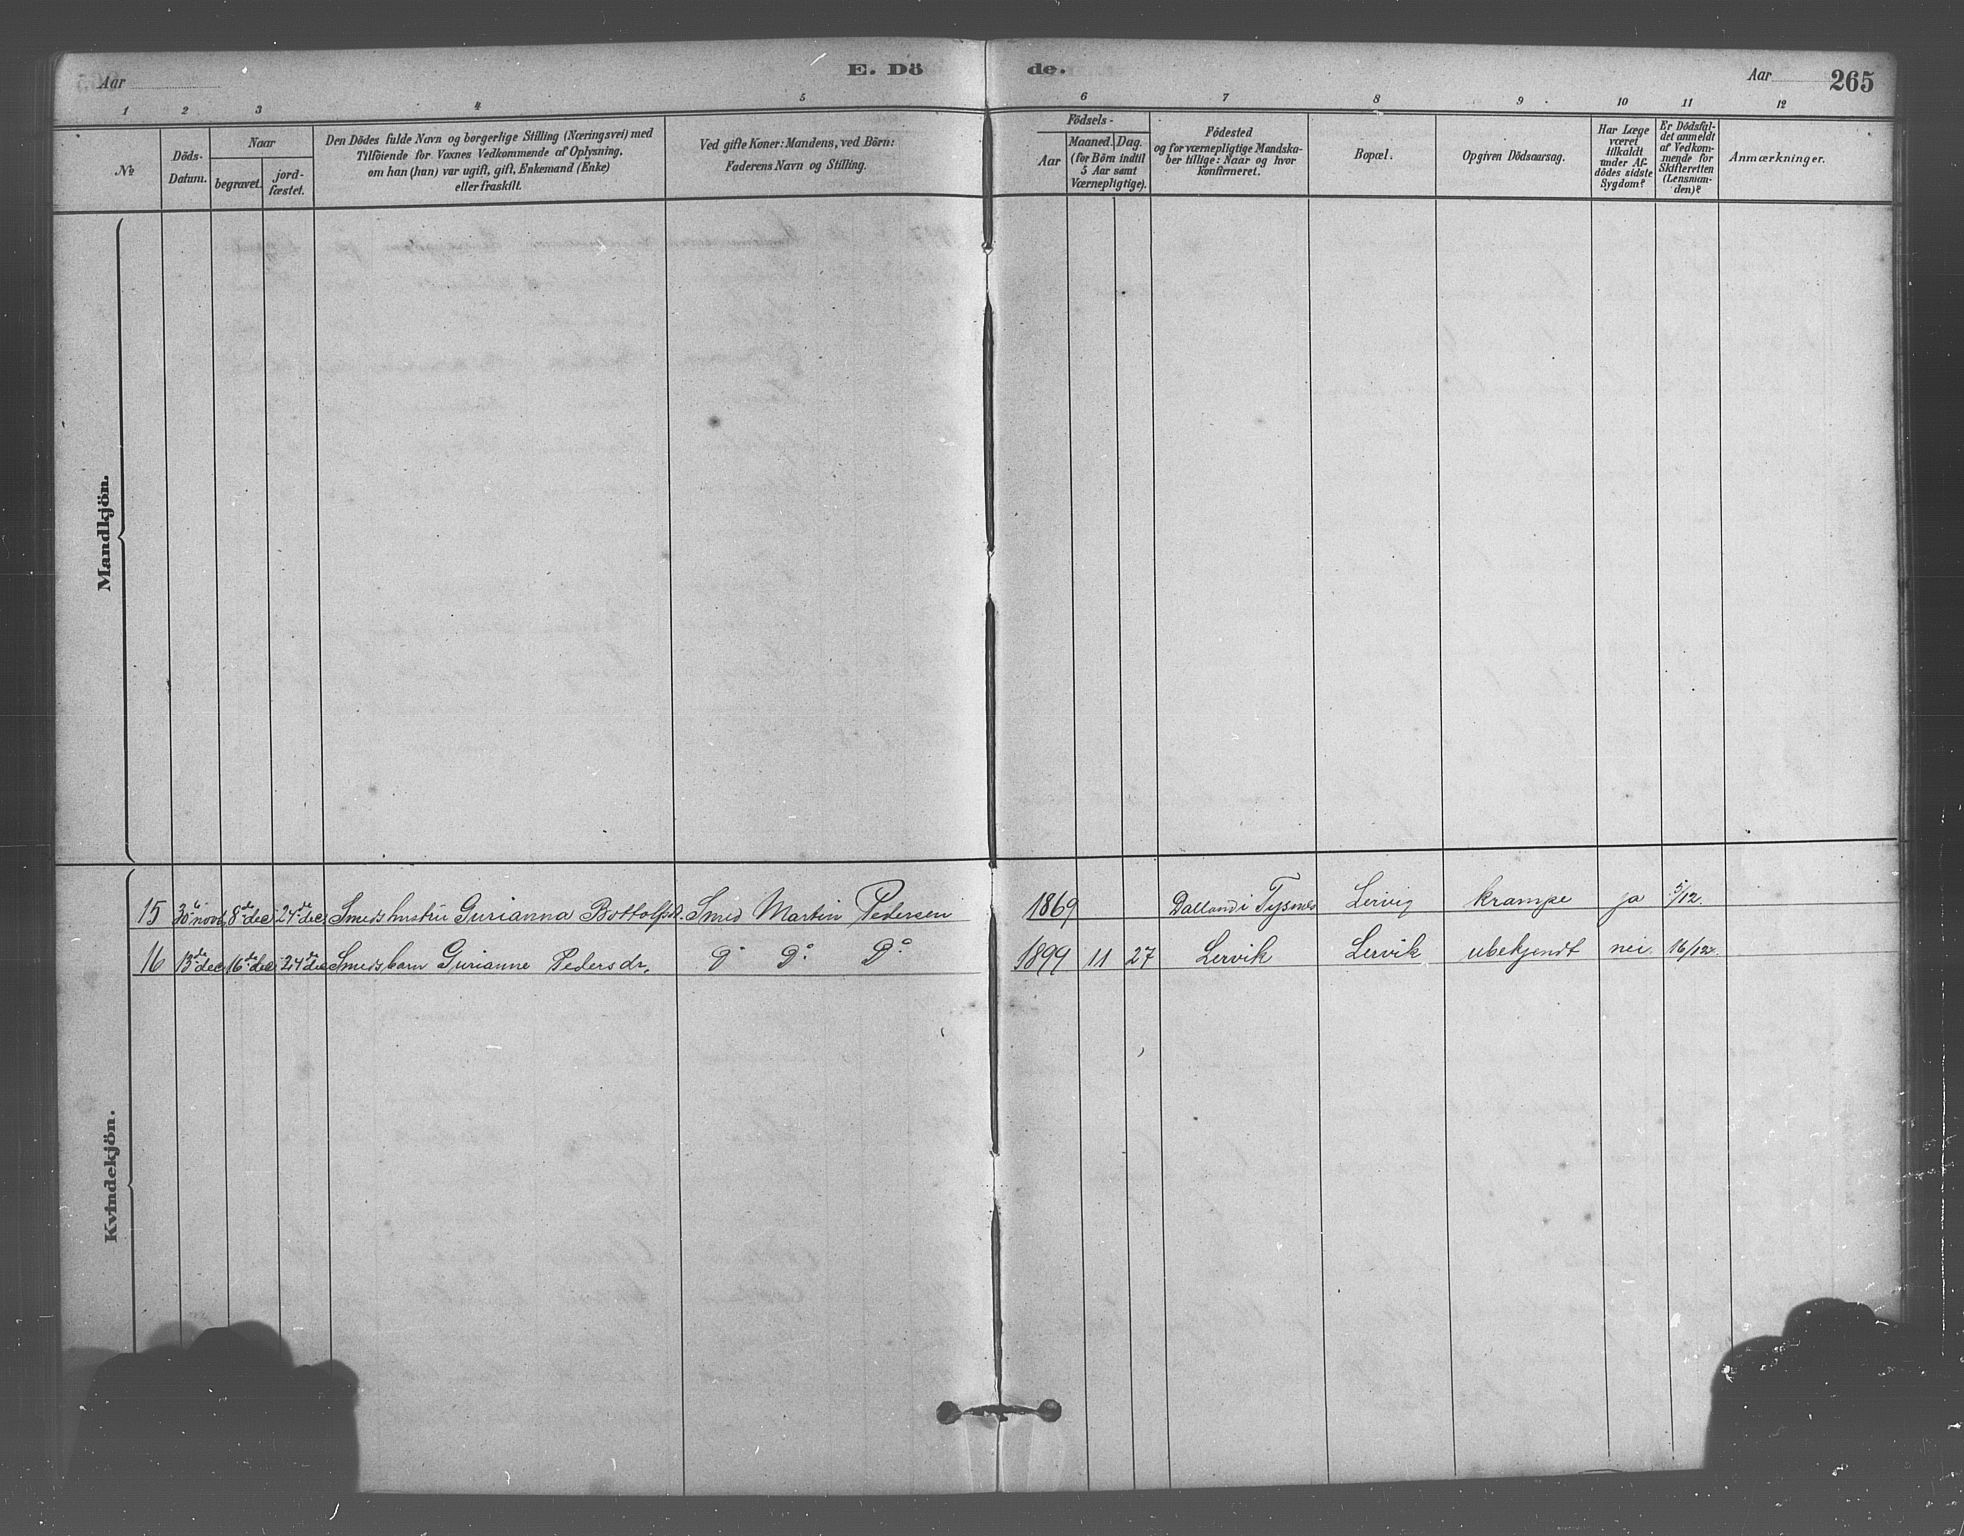 Aar
E. Dö
de.
Aar
265
1 2 3 4 5 6 7 8 9 10 11 12
№
Döds-
Datum.
Naar
begravet.
jord-
fæstet.
Den Dödes fulde Navn og borgerlige Stilling (Næringsvei) med
Tilföiende for Voxnes Vedkommende af Oplysning,
om han (hun) var ugift, gift, Enkemand (Enke)
eller fraskilt.
Ved gifte Koner: Mandens, ved Börn:
Faderens Navn og Stilling.
Födsels-
Aar
Maaned. Dag.
(for Börn indtil
5 Aar samt
Værnepligtige).
Födested
og for værnepligtige Mandska-
ber tillige: Naar og hvor
konfirmeret.
Bopæl.
Opgiven Dödsaarsag.
Har Læge
været
tilkaldt
under Af-
dödes sidste
Sygdom?
Er Dödsfal-
det anmeldt
af Vedkom-
mende for
Skifteretten
(Lensman-
den)?
Anmærkninger.
Mandkjön.
15 30te nov. 8de dec. 24de dec. Smeds hustru Gurianna Bottolfsd. Smed Martin Pedersen 1869 Dalland i Tysnes Lervig krampe ja 5/12.
16 13de dec. 16de dec. 24de dec. Smeds barn Gurianne Pedersdr. Do Do Do 1899 11 27 Lervik Lervik ubekjendt nei 16/12.
Kvindekjön.